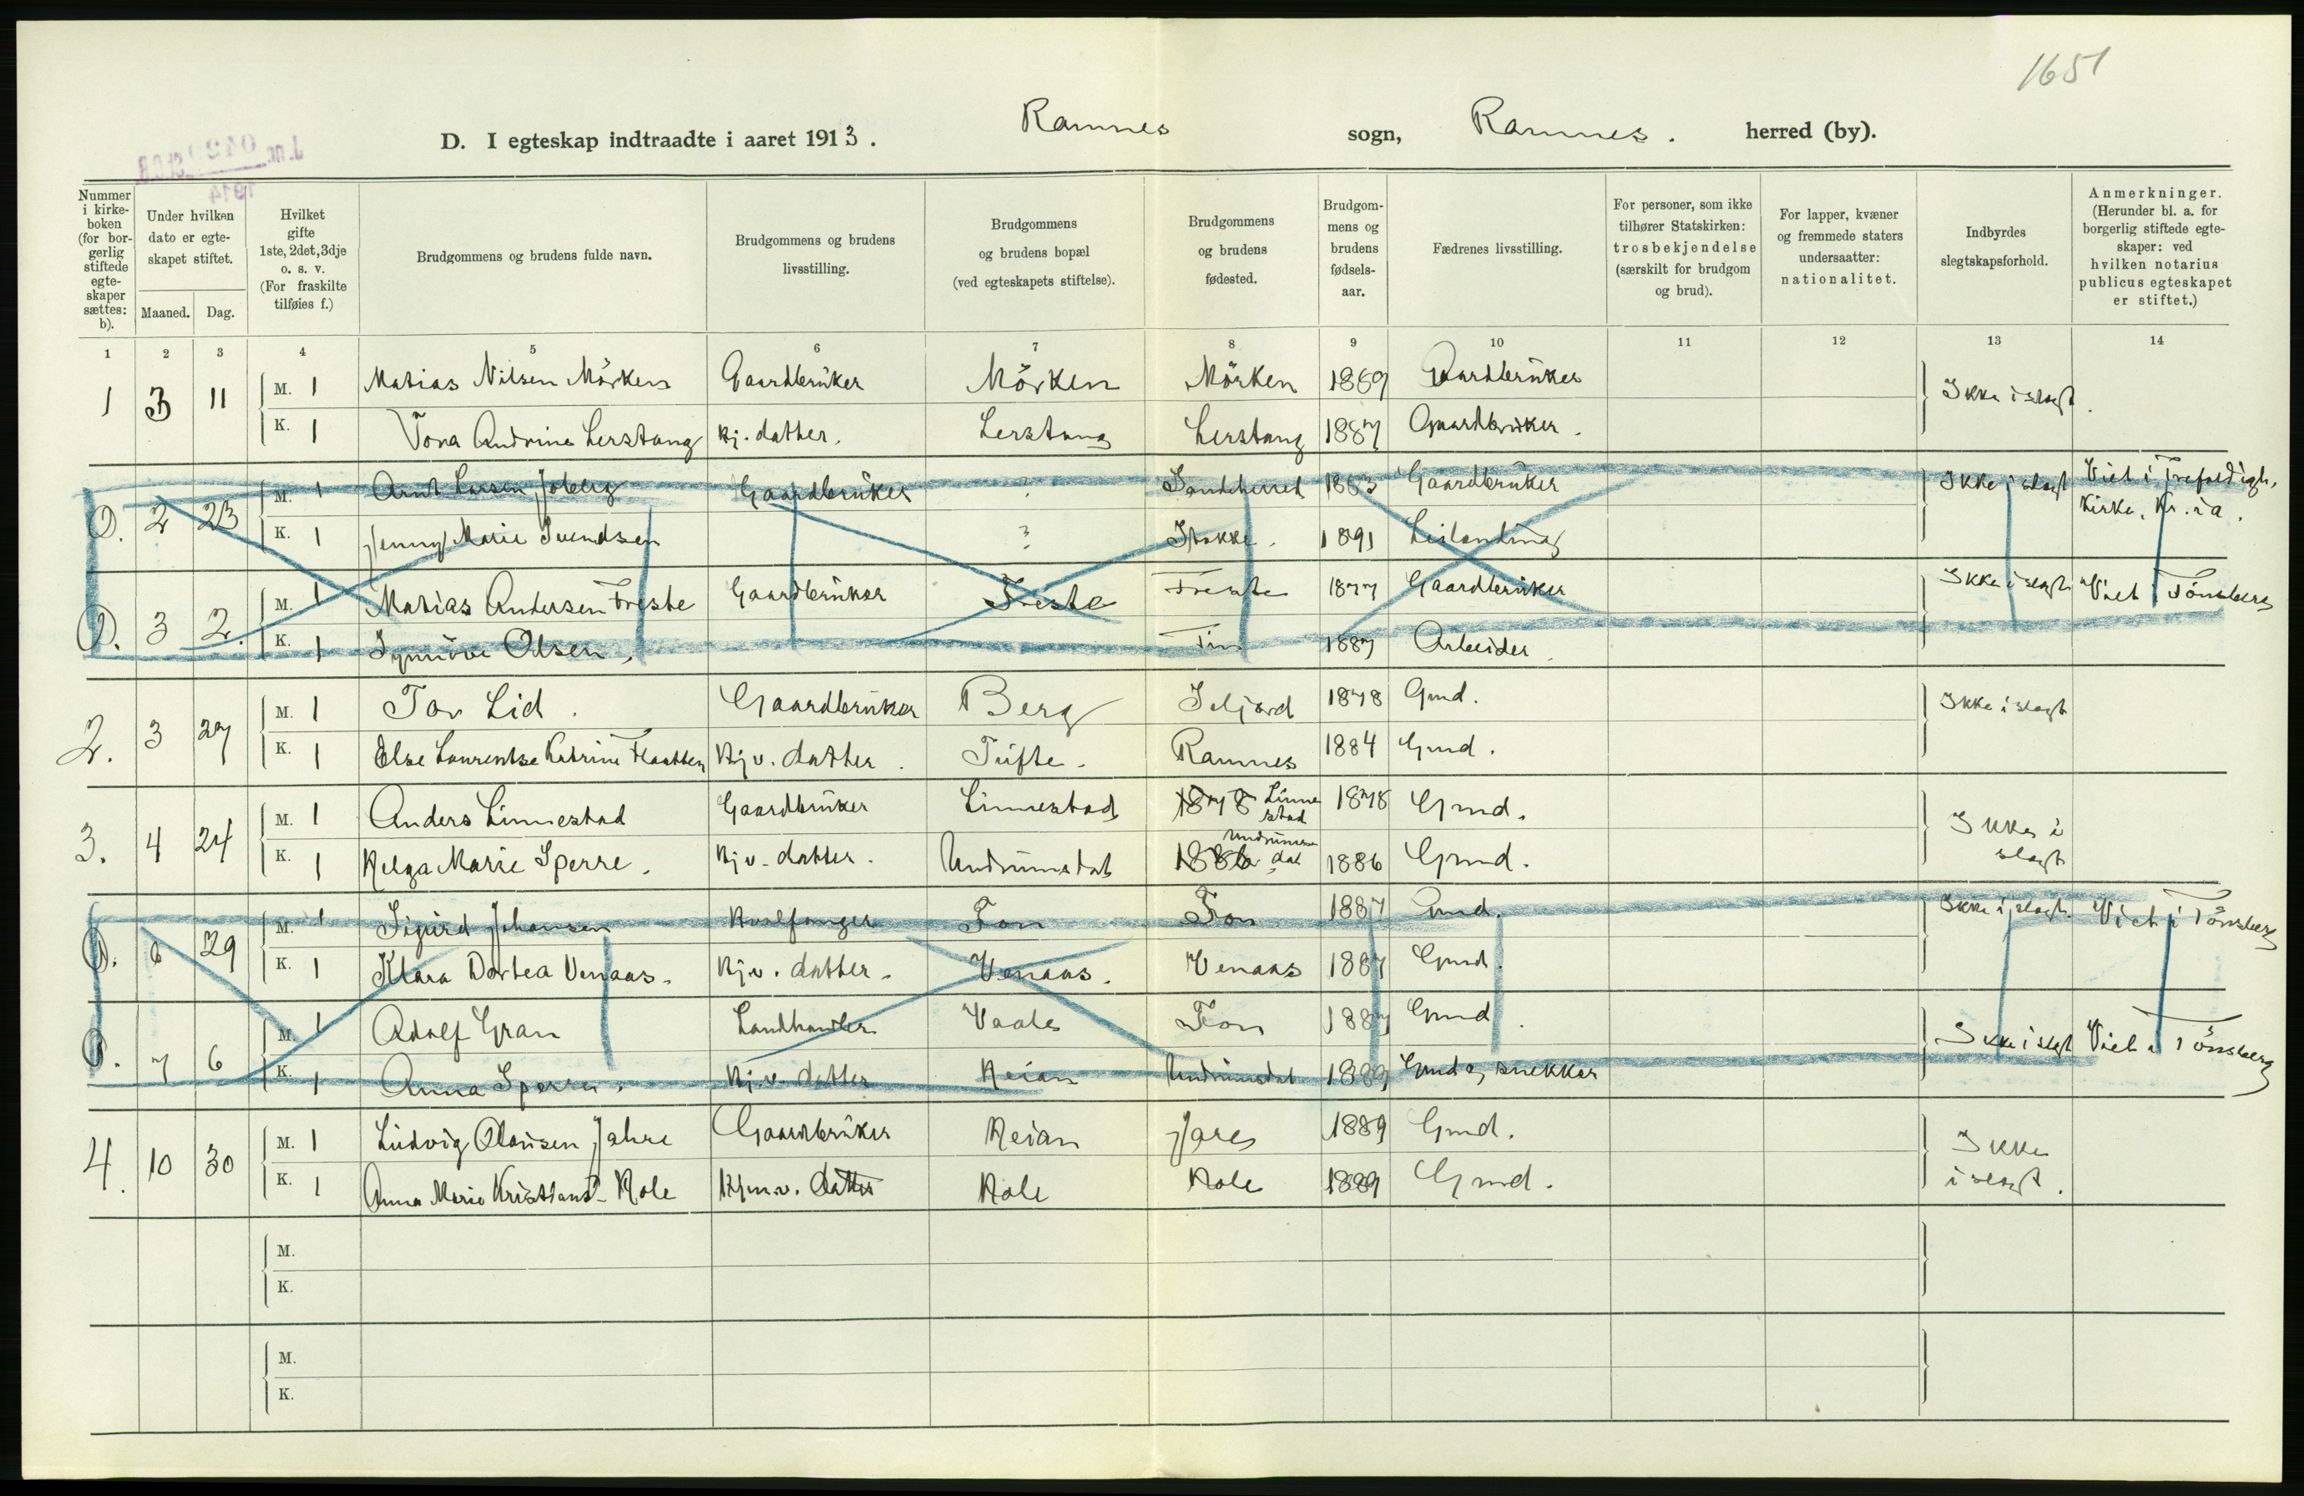 1651
D. I egteskap indtraadte i aaret 1913. Ramnes sogn, Ramnes. herred (by).
1914
Nummer i kirke-boken (for bor-gerlig stiftede egte-skaper sættes: b).
Under hvilken dato er egte-skapet stiftet.
Maaned. Dag.
Hvilket gifte 1ste, 2det, 3dje o. s. v. (For fraskilte tilføies f.)
Brudgommens og brudens fulde navn.
Brudgommens og brudens livsstilling.
Brudgommens og brudens bopæl (ved egteskapets stiftelse).
Brudgommens og brudens fødested.
Brudgom-mens og brudens fødsels-aar.
Fædrenes livsstilling.
For personer, som ikke tilhører Statskirken: trosbekjendelse (særskilt for brudgom og brud).
For lapper, kvæner og fremmede staters undersaatter: nationalitet.
Indbyrdes slegtskapsforhold.
Anmerkninger. (Herunder bl. a. for borgerlig stiftede egte-skaper: ved hvilken notarius publicus egteskapet er stiftet.)
1 2 3 4 5 6 7 8 9 10 11 12 13 14
1 3 11 M. 1 Matias Nilsen Mörken Gaardbrüker Mörken Mörken 1889 Gaardbrüker Ikke i slegt.
K. 1 Tora Andrine Lerstang Kj. datter. Lerstang Lerstang 1887 Gaardbrüker.
0. 2 23 M. 1 Arnt Larsen Gaardbrüker ? Sandeherred 1883 Gaardbrüker Ikke i slegt Viet i Trefoldigh.
K. 1 Jenny Marie Svendsen ? Stokke. 1891 Leilending Kirke, Kr.ia.
0. 3 2. M. 1 Matias Andersen Freste Gaardbrüker Freste Freste 1877 Gaardbrüker Ikke i slegt Viet i Tönsberg
K. 1 Synnöve Olsen. Tin 1887 Arbeider.
2. 3 27 M. 1 Tor Lid. Gaardbrüker Berg Seljord 1878 Gmd. Ikke i slegt
K. 1 Else Laurentse Katrine Flaatten Kj v. datter. Tüfte. Ramnes 1884 Gmd.
3. 4 24 M. 1 Anders Linnestad Gaardbrüker Linnestad 1878 Linnestad 1878 Gmd. Ikke i slegt
K. 1 Helga Marie Sperre. Kj v. datter. Undrumsdal 1886 Undrumsdal 1886 Gmd.
0. 6 29 M. 1 Sigürd Johansen Hvalfanger Fon Fon 1887 Gmd. Ikke i slegt. Viet i Tönsberg
K. 1 Klara Dortea Venaas. Kj.v. datter. Venaas. Venaas 1887 Gmd.
0. 7 6 M. 1 Adolf Gran Landhandler Vaale Fon 1887 Gmd. Ikke i slegt Viet i Tönsberg
K. 1 Anna Sperre. Kj.v. datter Reian Undrumsdal 1889 Gmd og snekker
4. 10 30 M. 1 Lüdvig Olaüsen Jahre Gaardbrüker Reian Jare 1889 Gmd. Ikke i slegt.
K. 1 Anna Marie Kristians. Hole Hjm.v. datter Hole Hole 1889 Gmd.
M.
K.
M.
K.